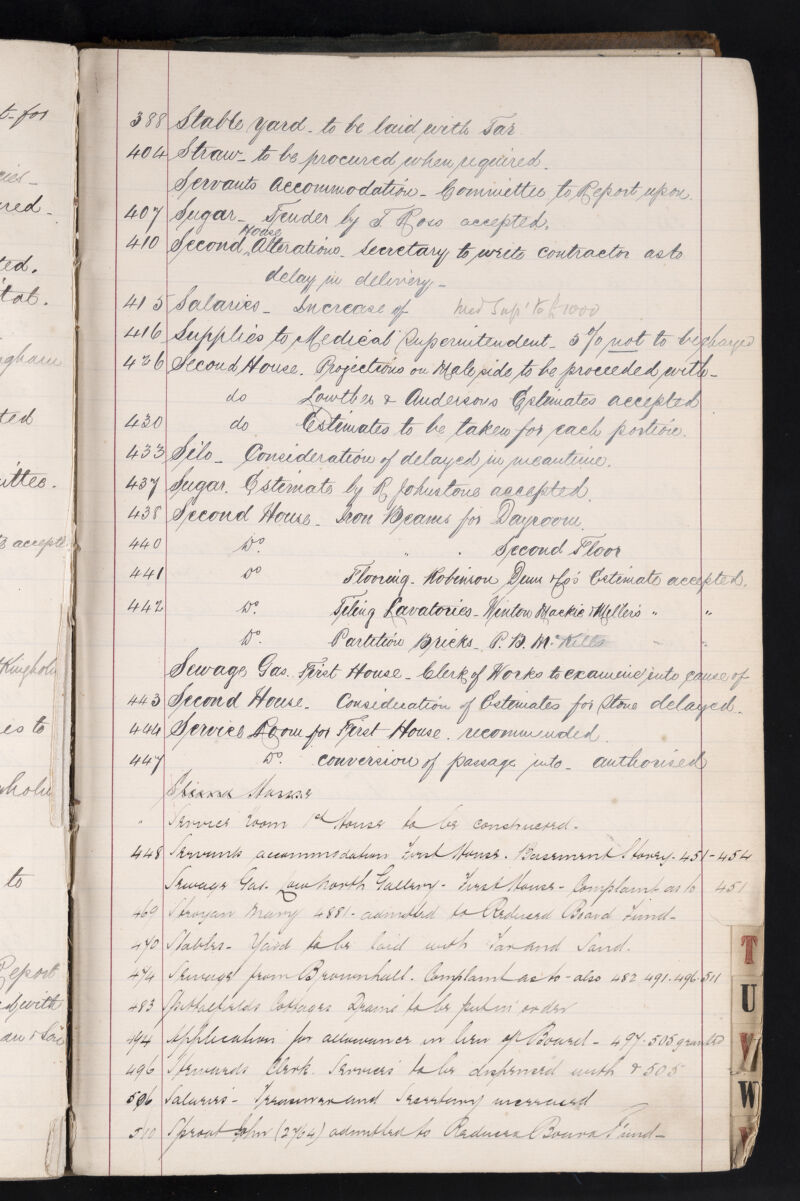 t-for
red-
ted.
ngham
ted
ittee.
accepte
Kingholm
to
Report
with
388 Stable yard - to be laid with Tar
404 Straw - to be procured when required.
Servants Accommodation - Committee to Report upon.
407 Sugar - Tender by T Ross accepted.
410 Second House Alterations - Secretary to write contractor as to
delay in delivery -
415 Salaries - Increase of Med Supt to £1000
416 Supplies to Medical Superintendent - 5% not to be charged
436 Second House. Projections on Male side to be proceeded with -
do Lowther & Andersons Estimates accepted
430 do Estimates to be taken for each portion.
433 Silo - Consideration of delayed in meantime.
437 Sugar. Estimate by R Johnstone accepted.
438 Second House - Iron Beams for Dayroom.
440 Do " " Second Floor
441 Do Flooring - Robinson Dunn & Co's Estimate accepted.
442 Do Tiling Lavatories - Winton Mackie & Miller's " "
Do Partition Bricks - P. B. " "
Sewage Gas. First House - Clerk of Works to examine into cause of
443 Second House. Consideration of Estimates for Stone delayed.
444 Service Room for First House. recommended.
447 Do conversion of passage into - authorised
" Service Room 1st House to be constructed -
448 Servants accommodation First House. Basement Storey. 451-454
Sewage Gas. Low North Gallery - First House - Complaint as to 451
469 Stroyan Mary 4881 - admitted to Reduced Board Fund -
470 Stables - Yard to be laid with Tar and Sand.
474 Sewage from Brownhall. Complaint as to - also 482. 491. 496. 511
483 Spittalfields Cottages Drains to be put in order
494 Application for allowance in lieu of Board - 497. 505 granted
496 Stewards Clerk. Services to be dispensed with & 505
506 Salaries - Treasurer and Secretary increased
510 Sproat John (2764) admitted to Reduced Board Fund -
T
U
V
W